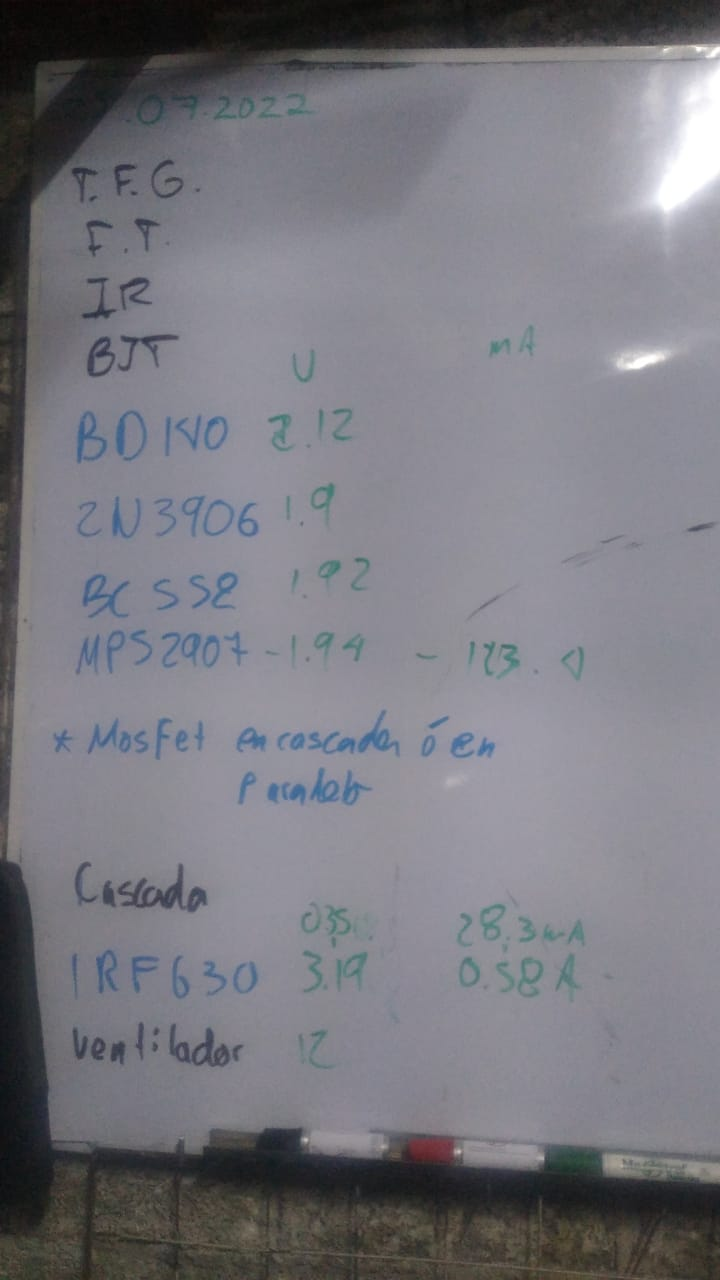 .07.2022
T.F.G.
F.T.
IR
BJT U mA
BD140 2.12
2N3906 1.9
BC558 1.92
MPS2907 -1.94 - 123.
* Mosfet en cascada ó en
Paralelo
Cascada
28.3mA
IRF630 3.19 0.58A
ventilador 12